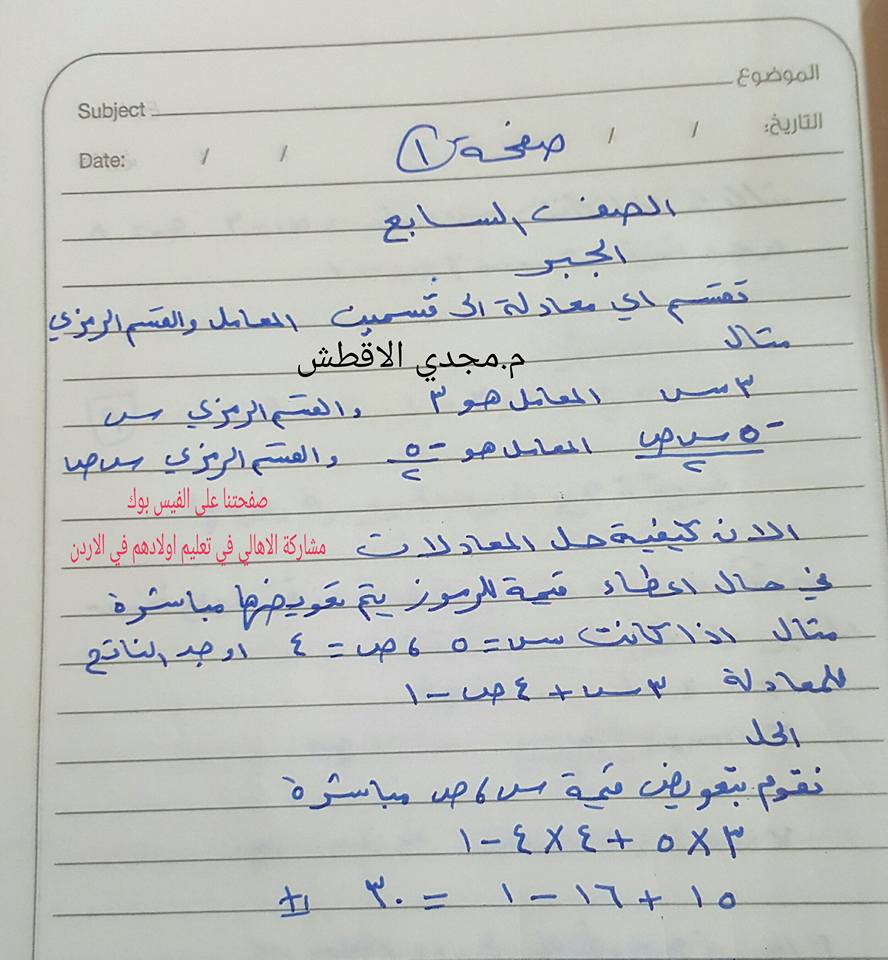 الموضوع
Subject
التاريخ: / /
Date: / /
صفحة ١
الصف السابع
الجبر
تقسم اي معادلة الى قسمين المعامل والقسم الرمزي
مثال
م.مجدي الاقطش
٣ س المعامل هو ٣ والقسم الرمزي س
-٥ س ص / ٢ المعامل هو -٥ / ٢ والقسم الرمزي س ص
صفحتنا على الفيس بوك
مشاركة الاهالي في تعليم اولادهم في الاردن
الان كيفية حل المعادلات
في حال اعطاء قيمة للرموز يتم تعويضها مباشرة
مثال اذا كانت س = ٥ ، ص = ٤ اوجد الناتج
للمعادلة ٣ س + ٤ ص - ١
الحل
نقوم بتعويض قيمة س ، ص مباشرة
٣ × ٥ + ٤ × ٤ - ١
١٥ + ١٦ - ١ = ٣٠